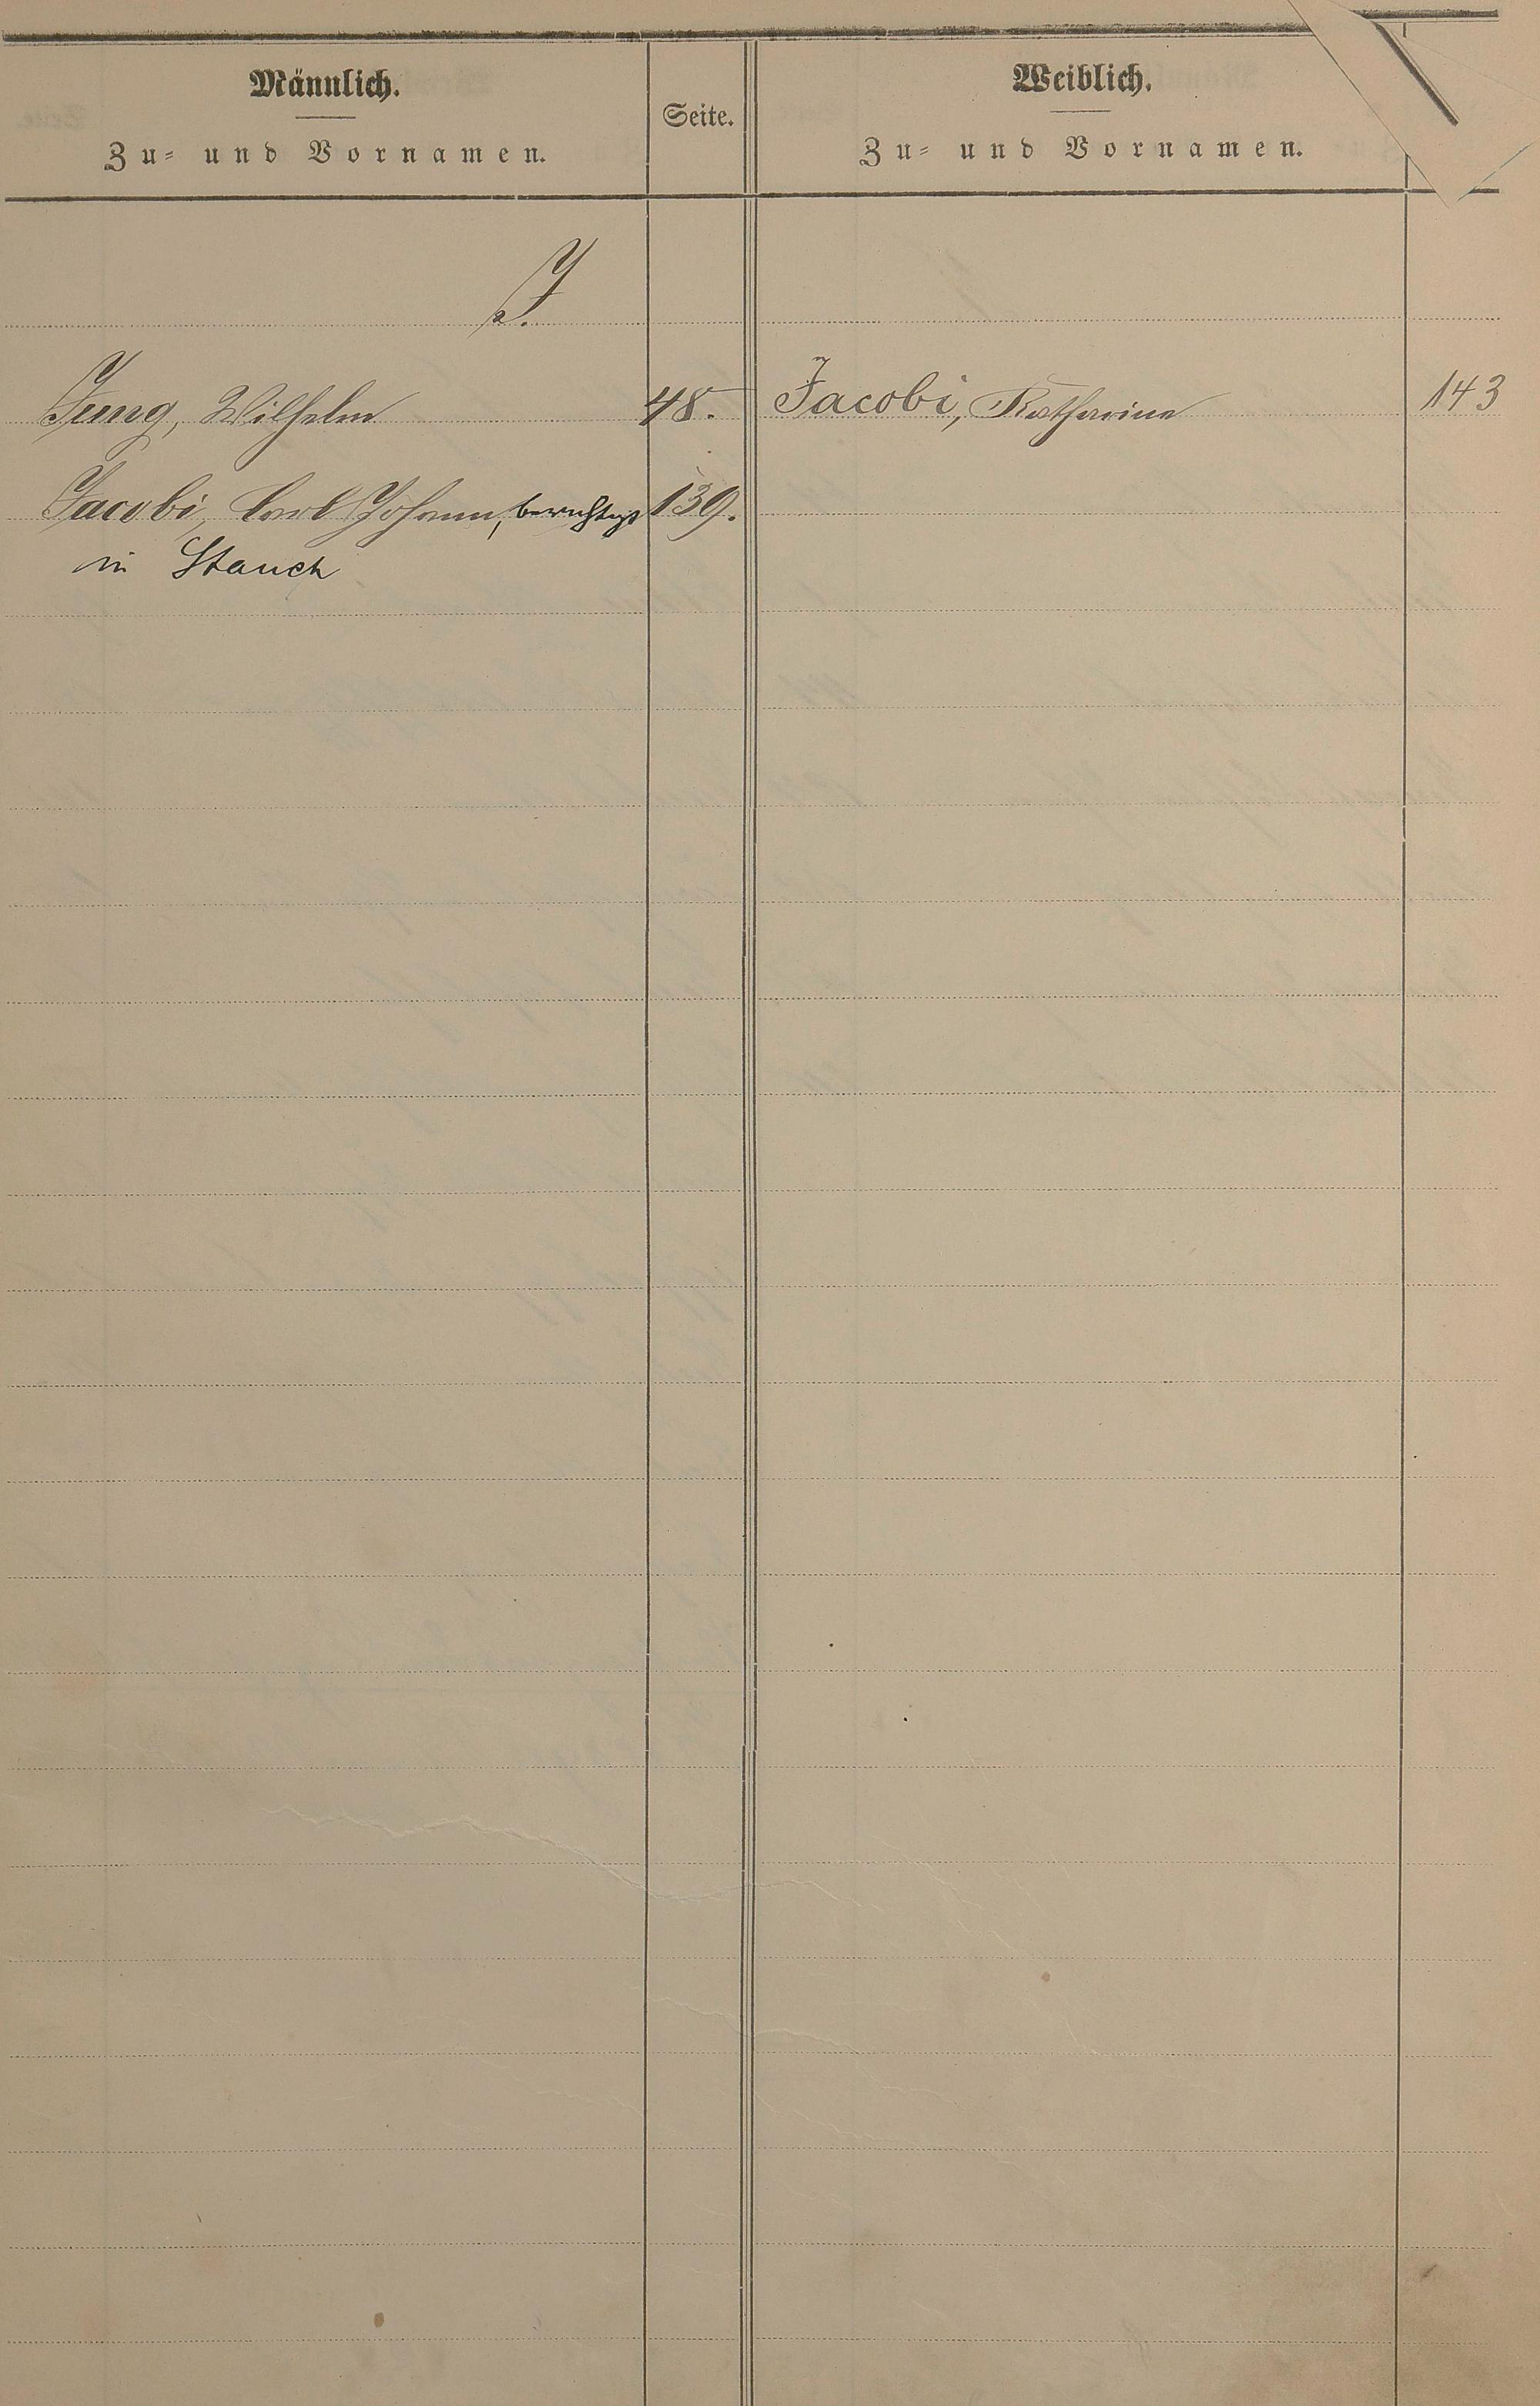 Männlich.
Zu- und Vornamen.
Seite.
Weiblich.
Zu- und Vornamen.
J.
Jung, Wilhelm 48.
Jacobi, Carl Johann, berichtigt 139.
in Stauch
Jacobi, Katharina 143